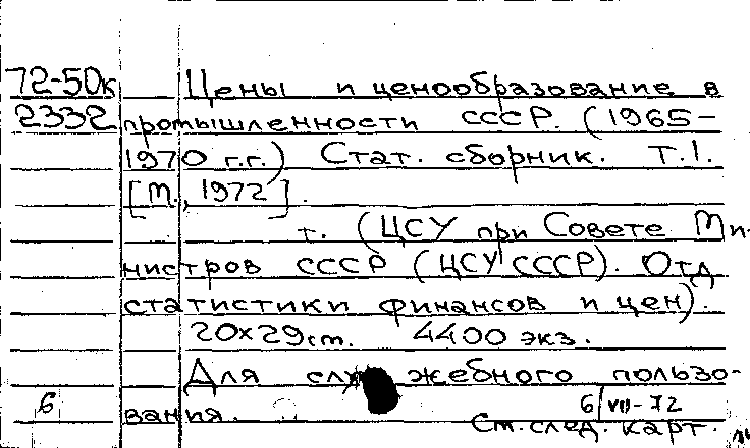 72-50к Цены и ценообразование в
2332 промышленности СССР. (1965-
1970 г.г.) Стат. сборник. Т.1.
[М., 1972].
т. (ЦСУ при Совете Ми-
нистров СССР (ЦСУ СССР). Отд
статистики финансов и цен).
20x29cm. 4400 экз.
Для служебного пользо-
6 вания. 6/VII-72
См. след. карт.